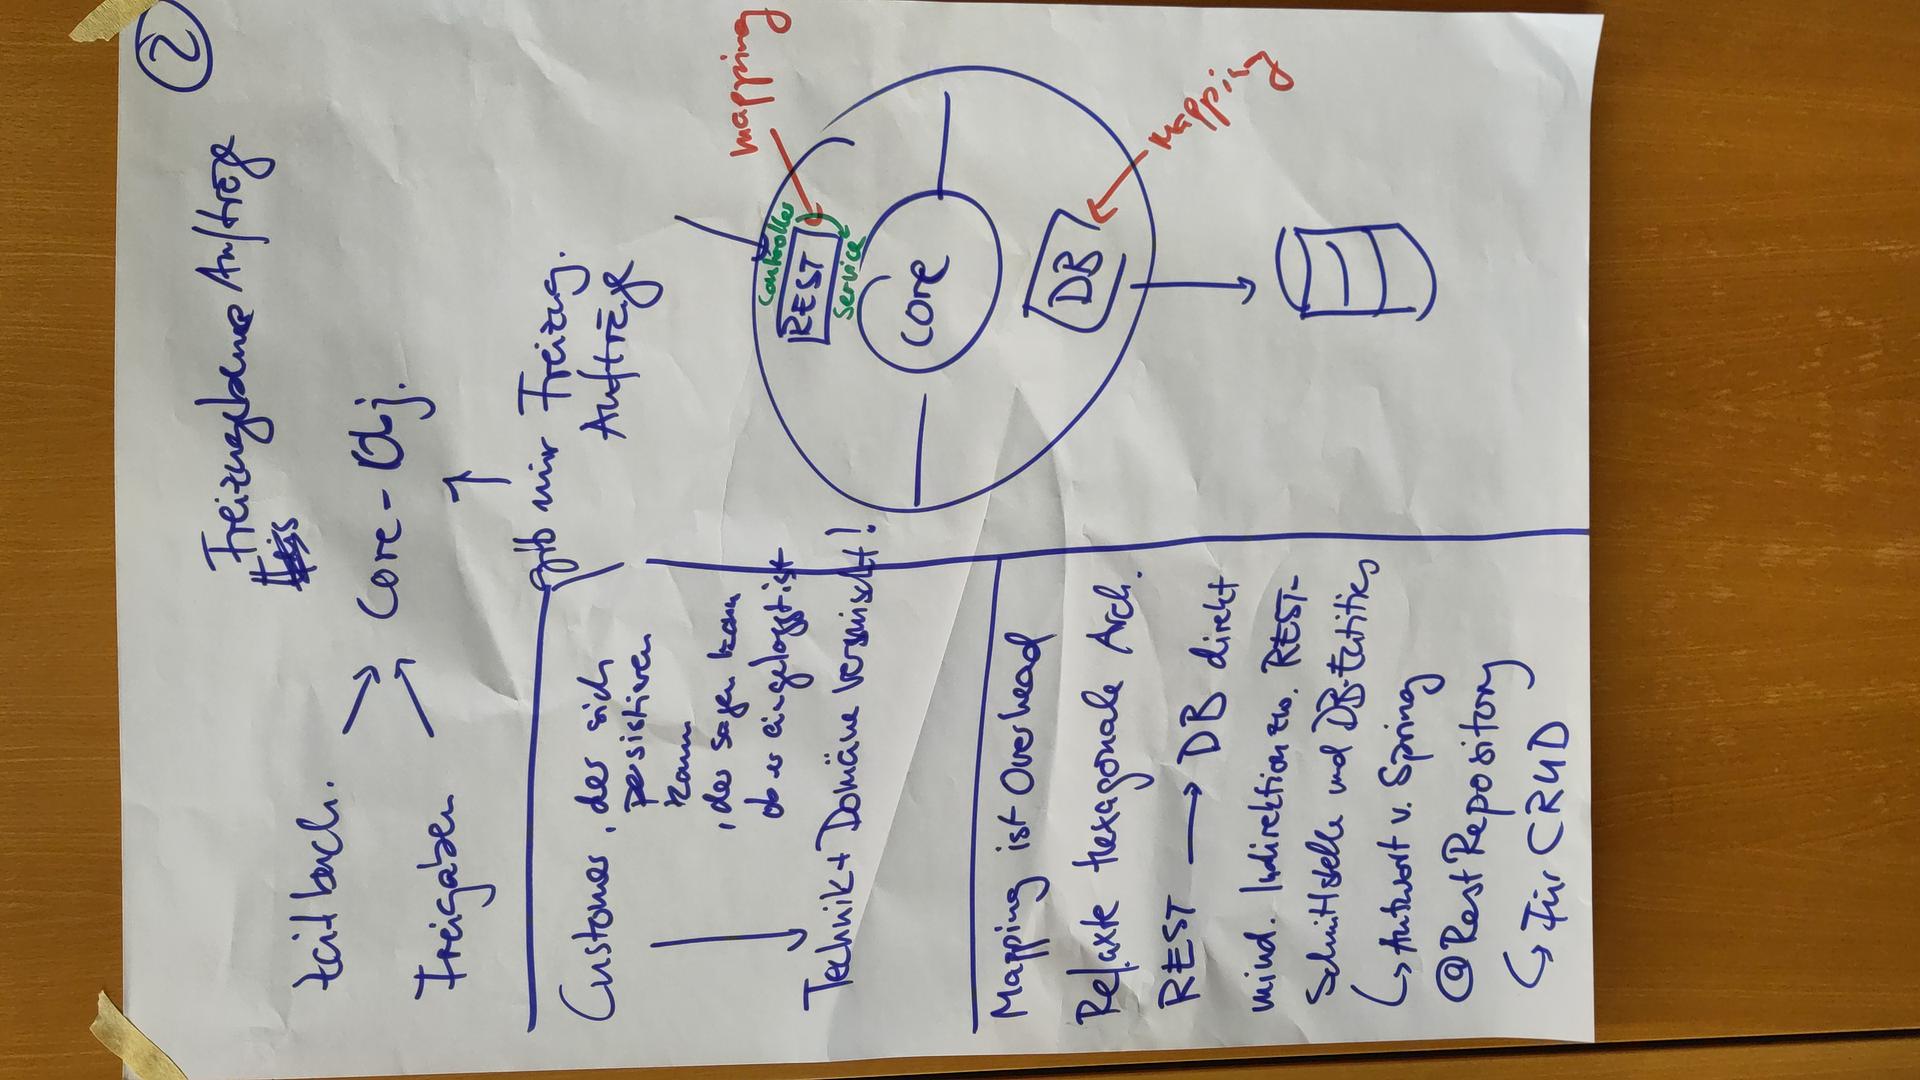 ②
Freizugebene Aufträg
Zeitbuch.
Core-Obj.
Freigaben
gib mir Freizug.
Aufträge
Customer, der sich
persistieren
kann
, der sagen kann
ob er eingeloggt ist
Technik + Domäne vermischt!
mapping
Controller
REST
Service
Core
DB
mapping
Mapping ist Overhead
Relaxte Hexagonale Arch.
REST → DB direkt
mind. Indirektion zw. REST-
Schnittstelle und DB-Entities
↳ Antwort v. Spring
@RestRepository
↳ für CRUD